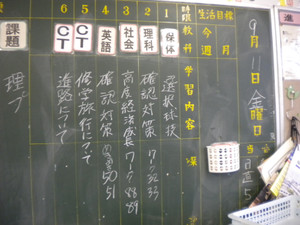 生活目標
今週
月
9月11日金曜日
時限
教科
学習内容
1
保体
選択球技
2
理科
確認対策 ワーク32.33
3
社会
高度経済成長 ワーク88.89
4
英語
確認対策 50 51
5
CT
修学旅行について
6
CT
進路について
課題
理
日直
進